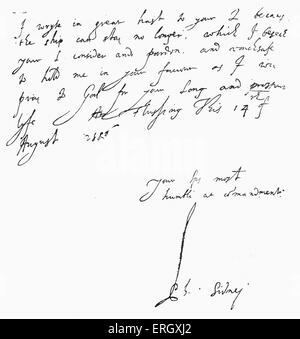 I wryte in great hast to your L becaus
the ship can stay no longer. which I beseech
your L consider and pardon. and vowchsafe
to hold me in your favour as I will
praie to God for your Long and prosperous
lyfe At Flushing this 14th
August 1586
Your Lps most
humble at comandment
Ph. Sidnei
alamy
Image ID: ERGXJ2
www.alamy.com